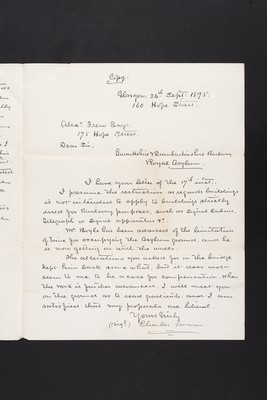 Copy.
Glasgow, 24th Sept. 1895.
160 Hope Street.
Alexr. Frew Esqr.
175 Hope Street.
Dear Sir,
Lanarkshire & Dumbartonshire Railway
Royal Asylum.
I have your letter of the 17th inst.
I presume the restriction as regards buildings
is not intended to apply to buildings strictly
used for Railway purposes, such as Signal Cabins,
Telegraph or Signal apparatus &c.
Mr. Boyle has been advised of the limitation
of time for occupying the Asylum ground, and he
is now getting on with the walls.
The alterations you asked for on the bridge
kept him back somewhat, but it does not
seem to me to be a case for compensation. When
the work is further advanced, I will meet you
on the ground as to road gradients, and I am
satisfied that my proposals are liberal
Yours truly
(Sigd.) Charles